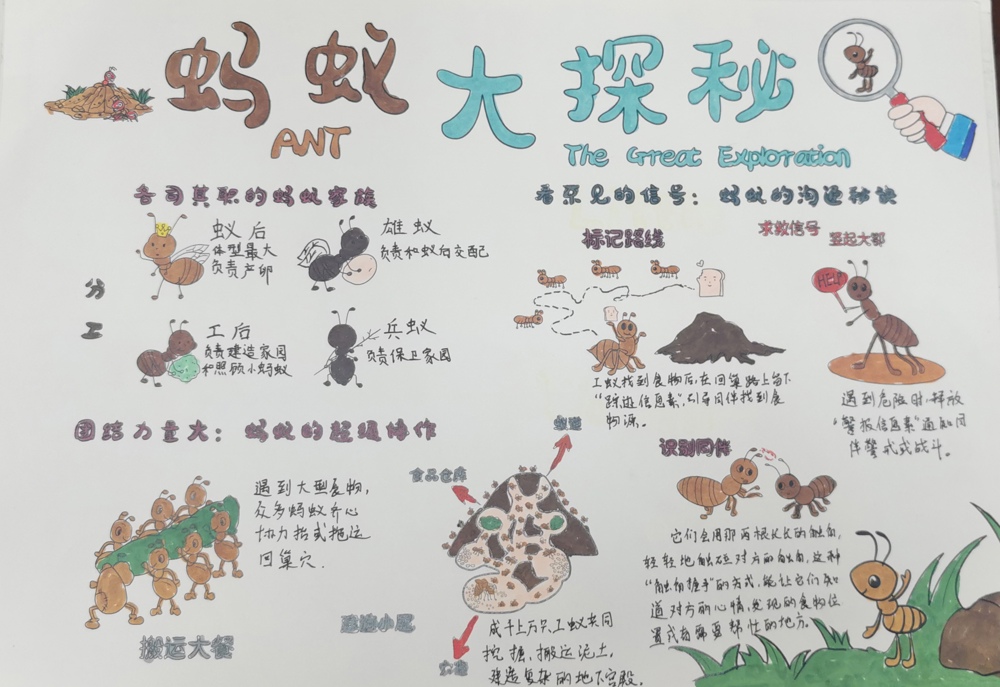 蚂蚁大探秘
ANT
The Great Exploration
各司其职的蚂蚁家族
分工
蚁后
体型最大
负责产卵
雄蚁
负责和蚁后交配
工后
负责建造家园
和照顾小蚂蚁
兵蚁
负责保卫家园
看不见的信号：蚂蚁的沟通秘诀
标记路线
工蚁找到食物后,在回巢路上留下
“踪迹信息素”,引导同伴找到食
物源。
求救信号
竖起大鄂
HELP
遇到危险时,释放
“警报信息素”通知同
伴警戒或战斗。
识别同伴
它们会用那两根长长的触角,
轻轻地触碰对方的触角,这种
“触角握手”的方式,能让它们知
道对方的心情,发现的食物位
置或者需要帮忙的地方。
团结力量大：蚂蚁的超强协作
遇到大型食物,
众多蚂蚁齐心
协力抬或拖运
回巢穴.
搬运大餐
食品仓库
建造小屋
成千上万只工蚁共同
挖掘、搬运泥土,
建造复杂的地下宫殿.